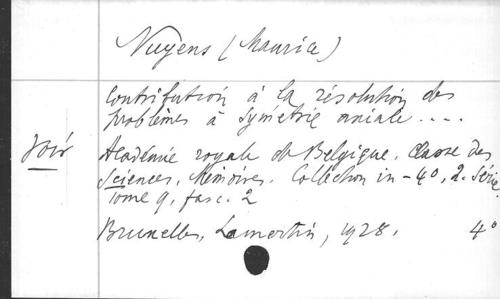 Nuyens (Maurice)
Contribution à la résolution des
problèmes à symétrie axiale ....
Voir Académie royale de Belgique. Classe des
Sciences. Mémoires. Collection in-4o, 2. Série
Tome 9, fasc. 2
Bruxelles, Lamertin, 1928. 4o